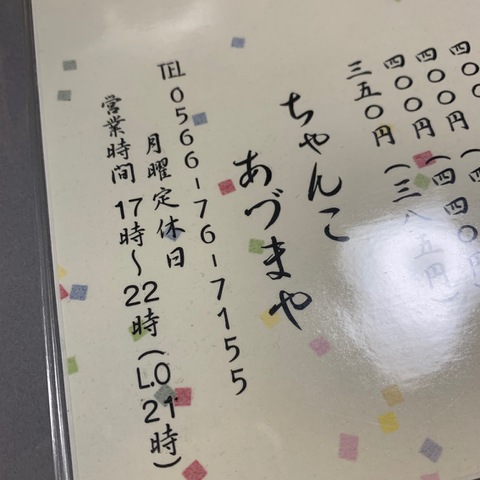 四〇〇円(四四〇円)
四〇〇円(四四〇円)
三五〇円(三八五円)
ちゃんこ
あづまや
TEL 0566-76-7155
月曜定休日
営業時間 17時~22時(L.O 21時)